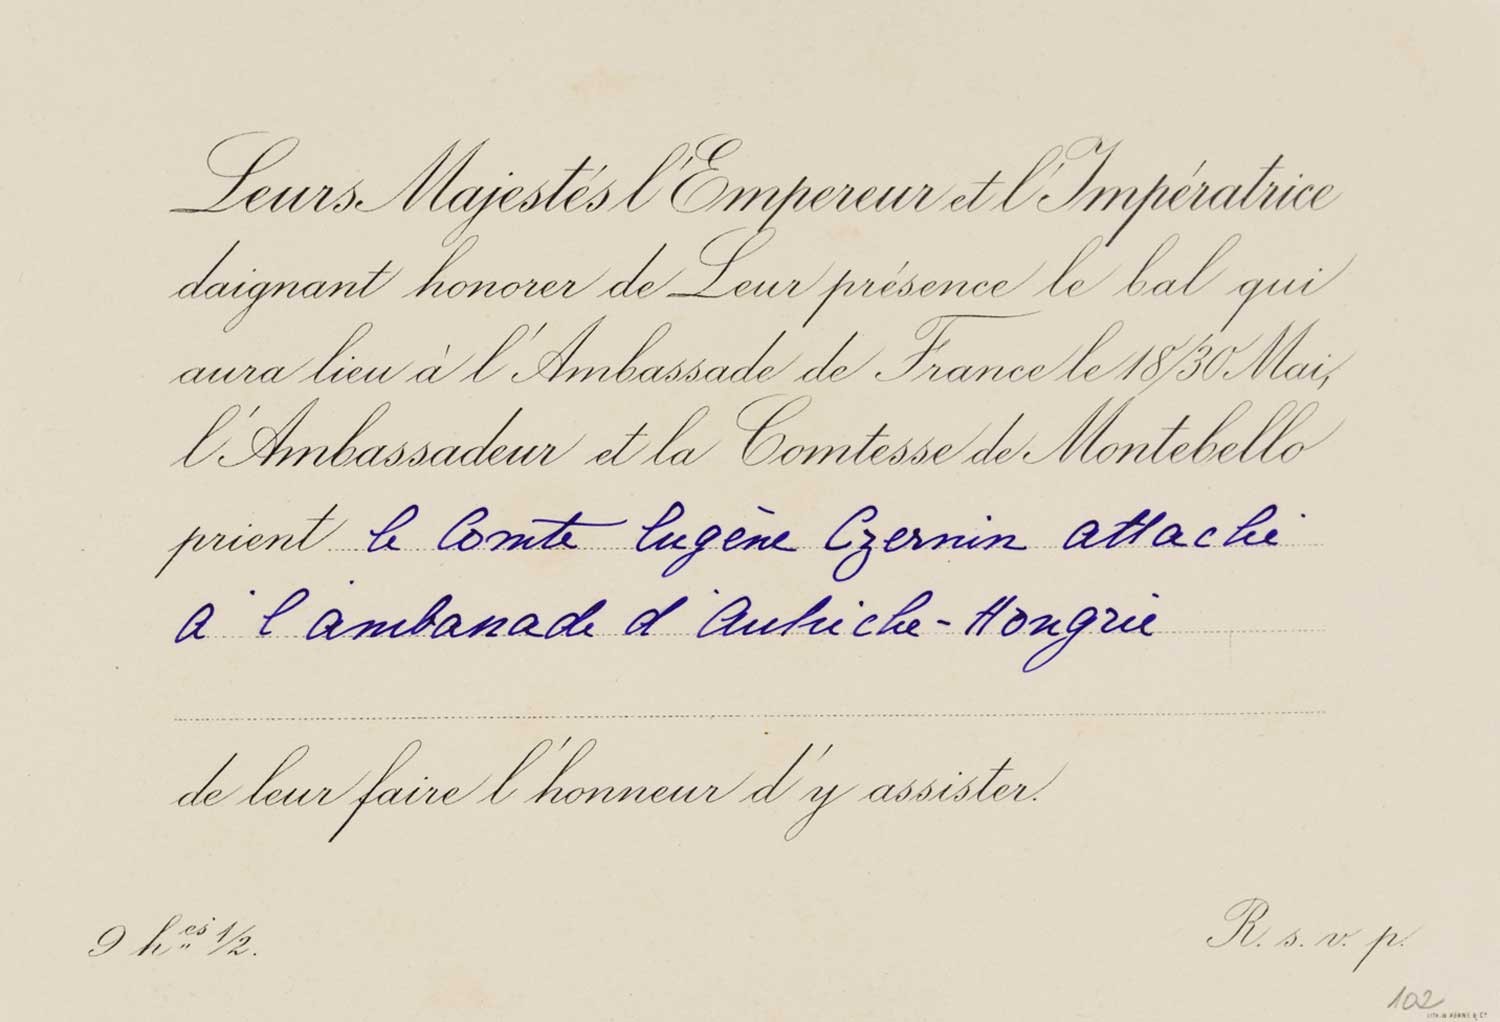 Leurs Majestés l'Empereur et l'Impératrice
daignant honorer de Leur présence le bal qui
aura lieu à l'Ambassade de France le 18/30 Mai,
l'Ambassadeur et la Comtesse de Montebello
prient le Comte Eugène Czernin attaché
à l'ambassade d'Autriche-Hongrie
de leur faire l'honneur d'y assister.
9 h.es 1/2.
R. s. v. p.
102